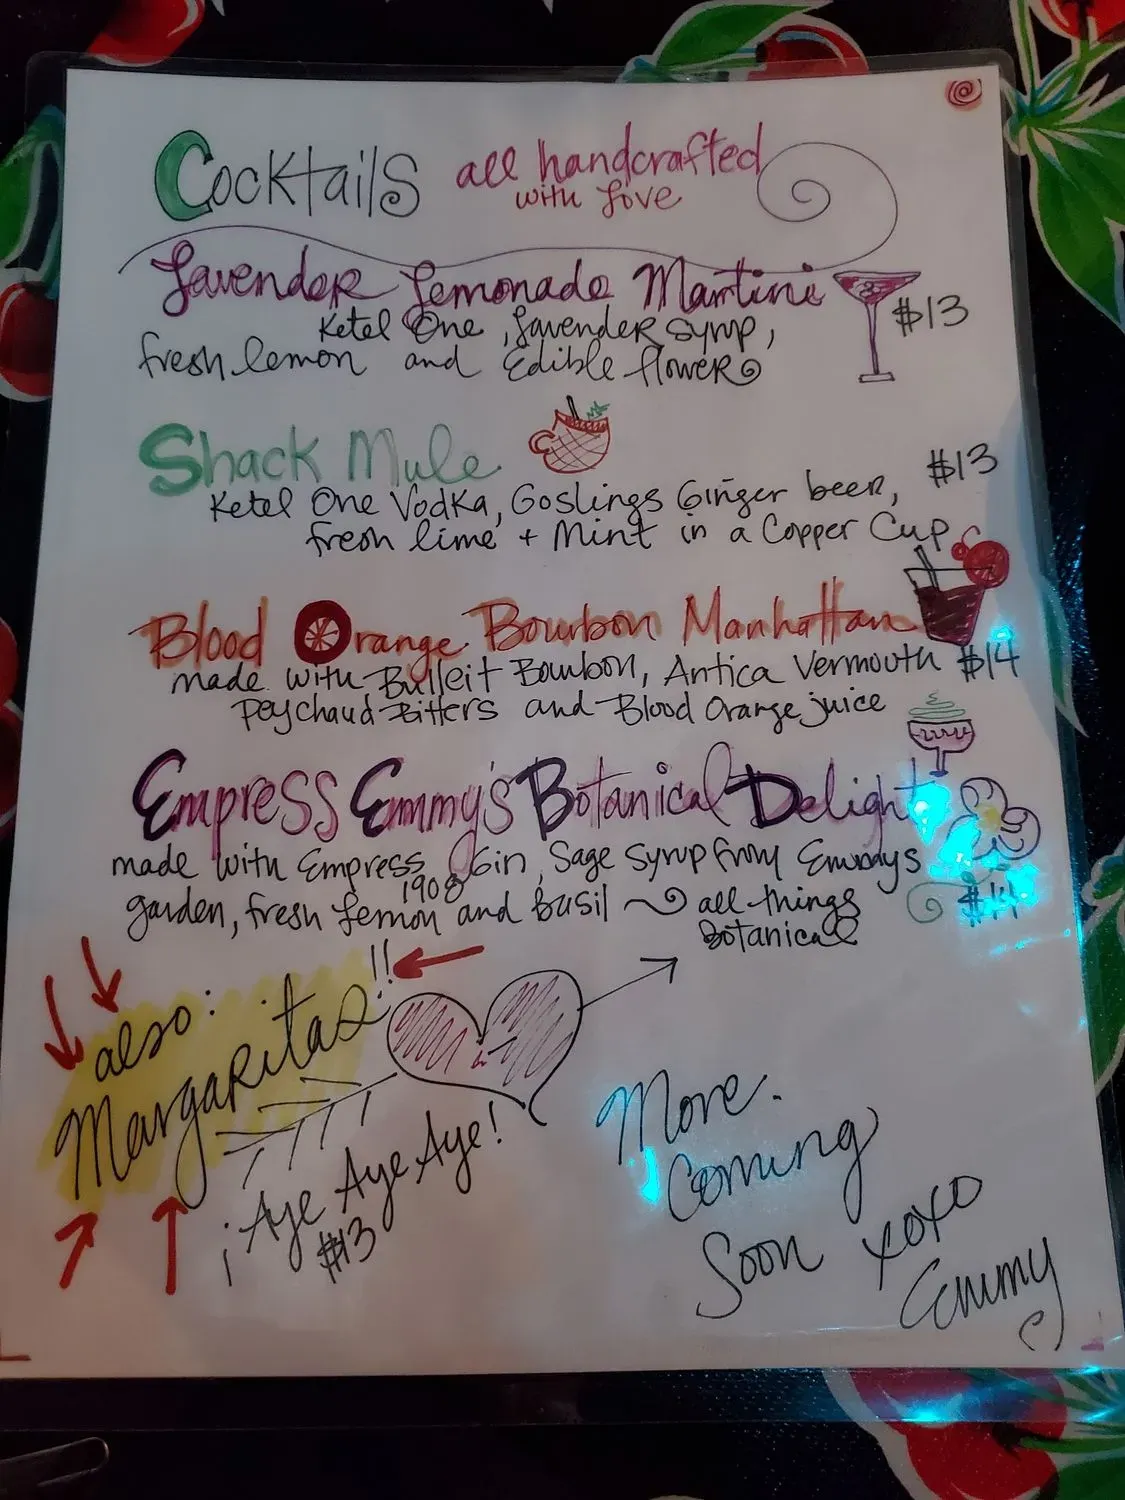 Cocktails all handcrafted
with love
Lavender Lemonade Martini
$13
Ketel One, Lavender syrup,
fresh lemon and Edible flower
Shack Mule
$13
Ketel One Vodka, Goslings Ginger beer,
fresh lime + Mint in a Copper Cup
Blood Orange Bourbon Manhattan
made with Bulleit Bourbon, Antica Vermouth $14
Peychaud Bitters and Blood Orange juice
Empress Emmy's Botanical Delight
made with Empress 1908 Gin, Sage syrup from Emmys
garden, fresh Lemon and Basil ~ all things $14
Botanical
also:
Margaritas!!
¡Aye Aye Aye!
$13
More
Coming
Soon xoxo
Emmy